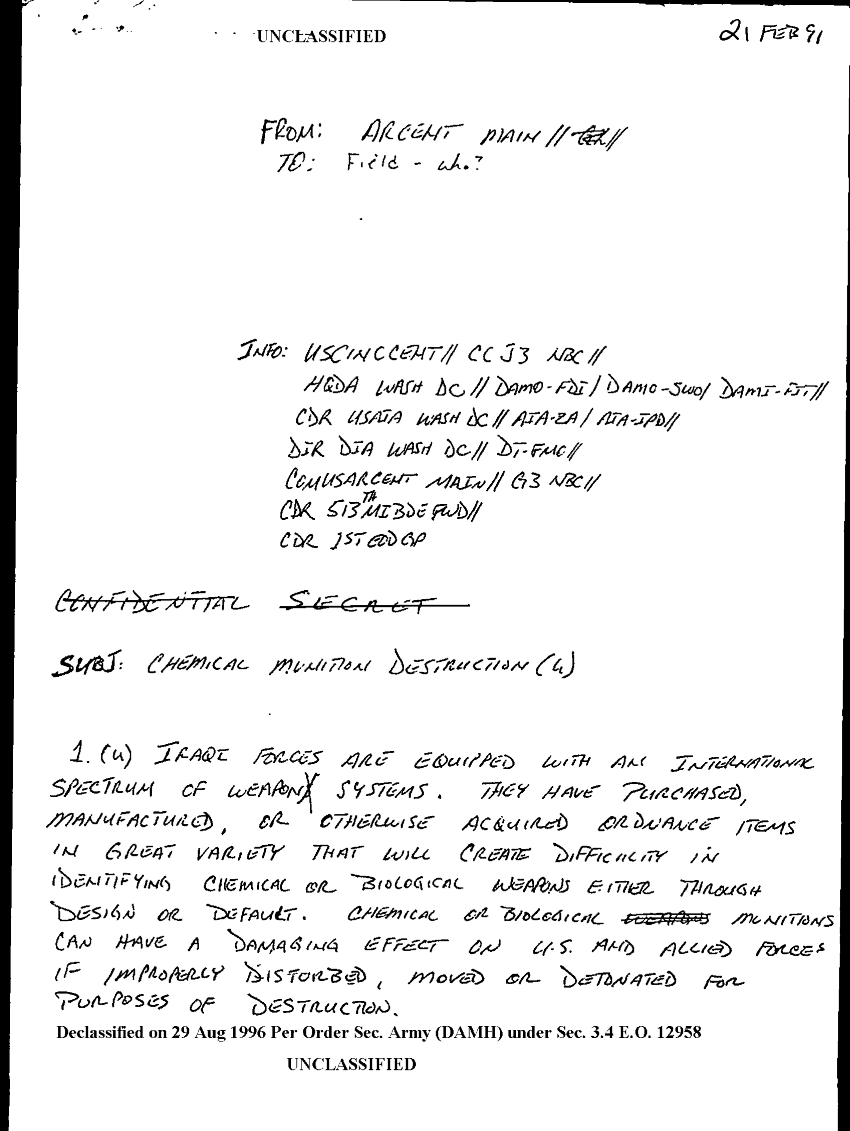 UNCLASSIFIED
21 FEB 91
FROM: ARCENT MAIN// //
TO: Field - who?
INFO: USCINCCENT// CCJ3 NBC//
HQDA WASH DC// DAMO-FDI/DAMO-SWO/ DAMI-FIT//
CDR USAIA WASH DC// AIA-ZA/ AIA-IPD//
DIR DIA WASH DC// DT-FMC//
COMUSARCENT MAIN// G3 NBC//
CDR 513TH MI BDE FWD//
CDR 1ST EOD GP
CONFIDENTIAL SECRET
SUBJ: CHEMICAL MUNITION DESTRUCTION (U)
1. (U) IRAQI FORCES ARE EQUIPPED WITH AN INTERNATIONAL
SPECTRUM OF WEAPON SYSTEMS. THEY HAVE PURCHASED,
MANUFACTURED, OR OTHERWISE ACQUIRED ORDNANCE ITEMS
IN GREAT VARIETY THAT WILL CREATE DIFFICULITY IN
IDENTIFYING CHEMICAL OR BIOLOGICAL WEAPONS EITHER THROUGH
DESIGN OR DEFAULT. CHEMICAL OR BIOLOGICAL MUNITIONS
CAN HAVE A DAMAGING EFFECT ON U.S. AND ALLIED FORCES
IF IMPROPERLY DISTURBED, MOVED OR DETONATED FOR
PURPOSES OF DESTRUCTION.
Declassified on 29 Aug 1996 Per Order Sec. Army (DAMH) under Sec. 3.4 E.O. 12958
UNCLASSIFIED